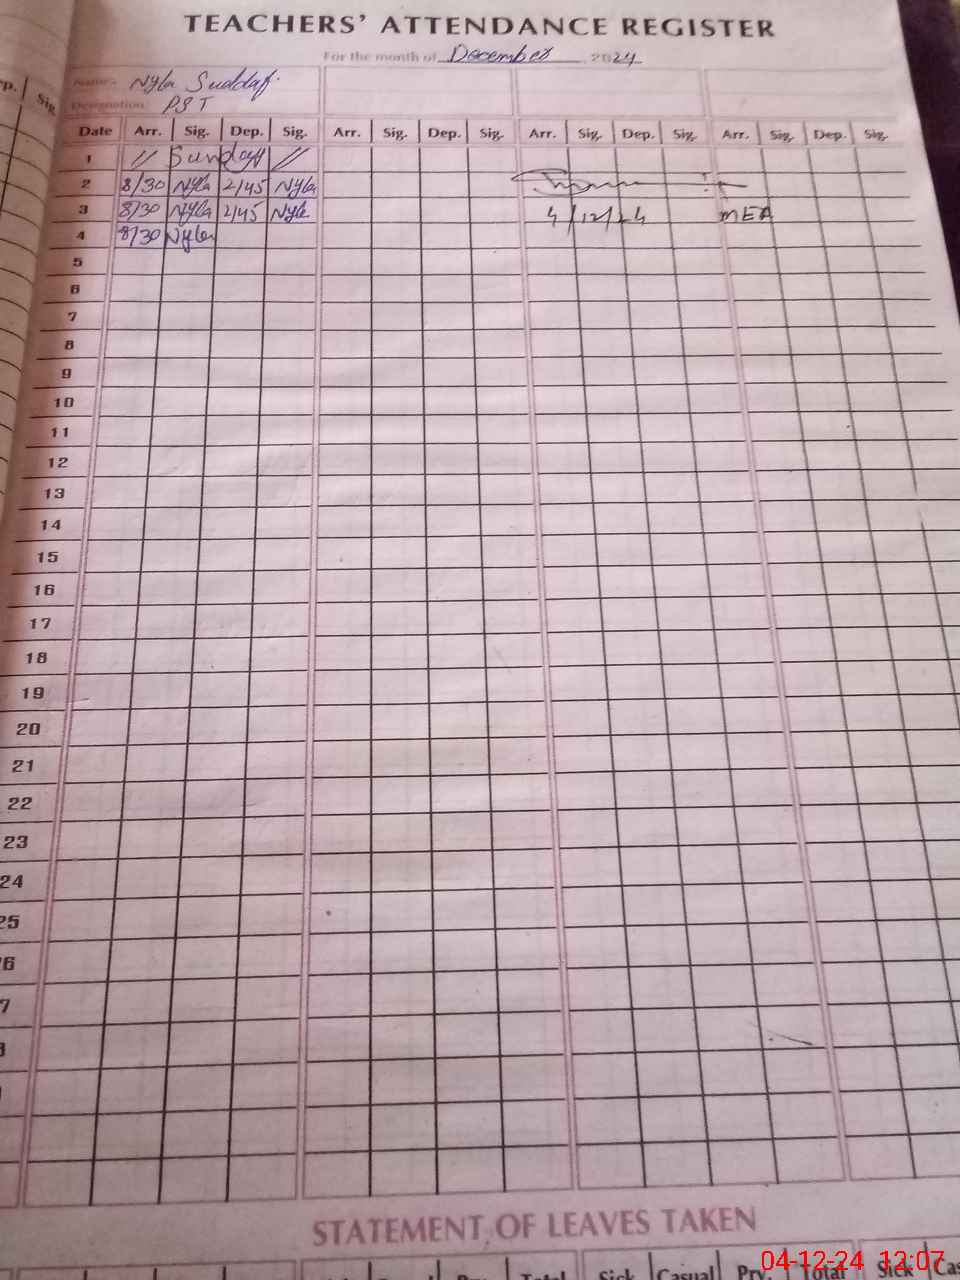 TEACHERS' ATTENDANCE REGISTER
For the month of December, 2024
p. Sig
Name: Nyla Suddaf
Designation: PST
Date Arr. Sig. Dep. Sig. Arr. Sig. Dep. Sig. Arr. Sig. Dep. Sig. Arr. Sig. Dep. Sig.
1 // Sunday //
2 8/30 Nyla 2/45 Nyla
3 8/30 Nyla 2/45 Nyla 4/12/24 MEA
4 8/30 Nyla
5
6
7
8
9
10
11
12
13
14
15
16
17
18
19
20
21
22
23
24
25
6
7
STATEMENT OF LEAVES TAKEN
Total Sick Casual Prv. Total Sick Cas
04-12-24 12:07